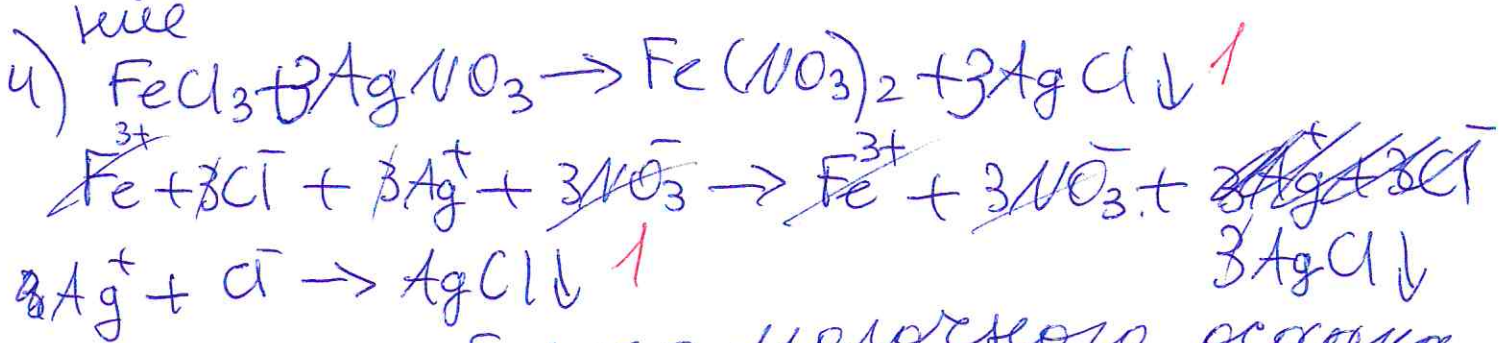 ние
4) FeCl₃ + 3AgNO₃ → Fe(NO₃)₂ + 3AgCl↓ 1
Fe³⁺ + 3Cl⁻ + 3Ag⁺ + 3NO₃⁻ → Fe³⁺ + 3NO₃⁻ +
3AgCl↓
Ag⁺ + Cl⁻ → AgCl↓ 1